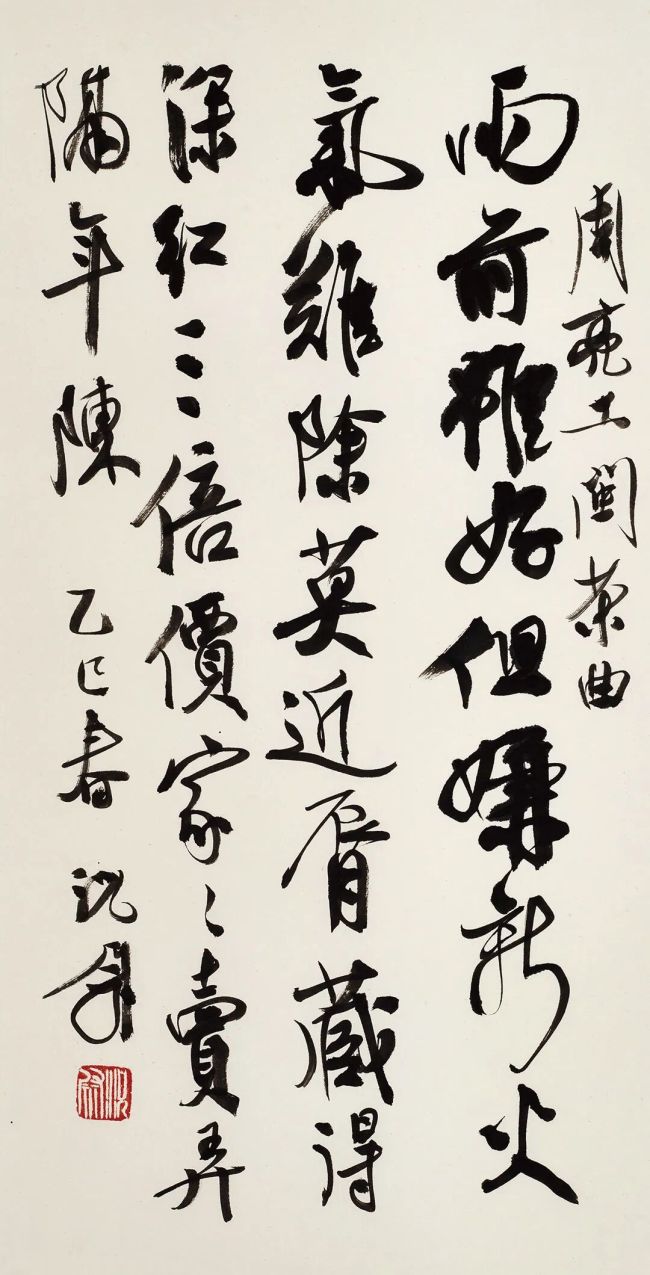 周亮工閩茶曲
雨前雖好但嫌新火
氣難除莫近脣藏得
深紅三倍價家々賣弄
隔年陳
乙巳春 沈